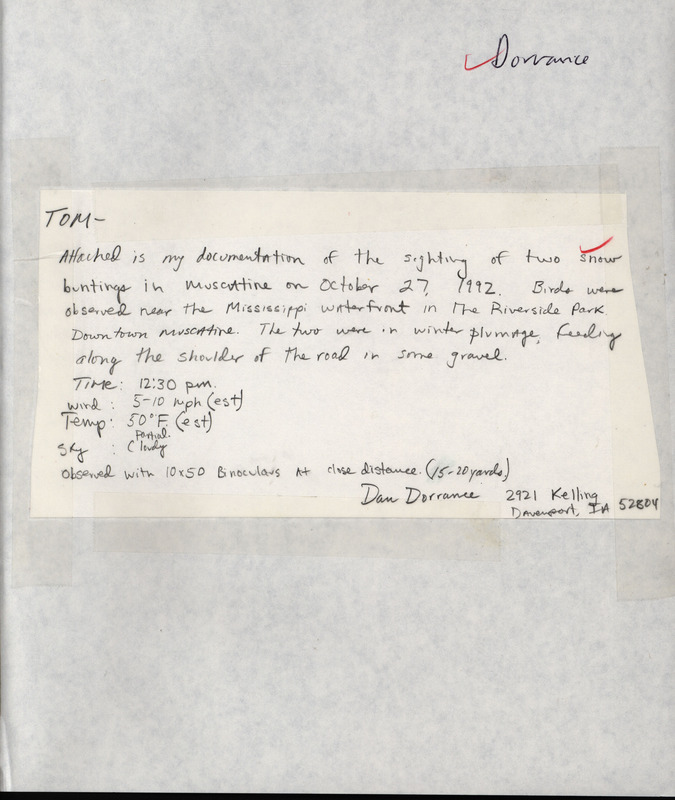 Dorrance
TOM-
Attached is my documentation of the sighting of two snow
buntings in Muscatine on October 27, 1992. Birds were
observed near the Mississippi waterfront in The Riverside Park
Downtown Muscatine. The two were in winter plumage, feeding
along the shoulder of the road in some gravel.
Time: 12:30 pm.
wind: 5-10 mph (est)
Temp: 50°F. (est)
Partial.
Sky : Cloudy
Observed with 10x50 Binoculars At close distance. (15-20 yards)
Dan Dorrance 2921 Kelling
Davenport, IA 52804